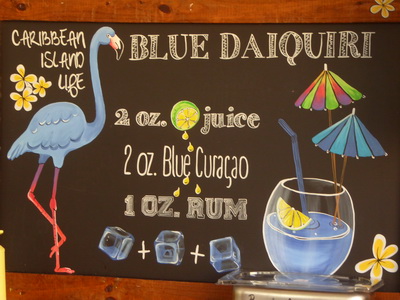 CARIBBEAN
ISLAND
LIFE
BLUE DAIQUIRI
2 oz. juice
2 oz. Blue Curaçao
1 OZ. RUM
+ +